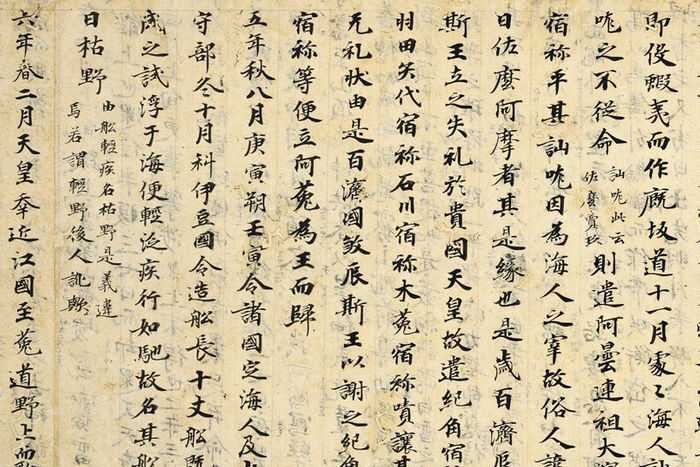 即役蝦夷而作廐坂道十一月處〻海人訕
呹之不從命
訕呹此云
佐麼賣玖
則遣阿曇連祖大
宿祢平其訕呹因為海人之宰故俗人諺
曰佐麼阿摩者其是緣也是歲百濟辰
斯王立之失礼於貴國天皇故遣紀角宿
羽田矢代宿祢石川宿祢木菟宿祢嘖讓其
无礼狀由是百濟國煞辰斯王以謝之紀角
宿祢等便立阿菟為王而歸
五年秋八月庚寅朔壬寅令諸國定海人及山
守部冬十月科伊豆國令造舩長十丈舩旣
成之試浮于海便輕泛疾行如馳故名其舩
曰枯野
由舩輕疾名枯野是義違
焉若謂輕野後人訛歟
六年春二月天皇幸近江國至菟道野上而歌